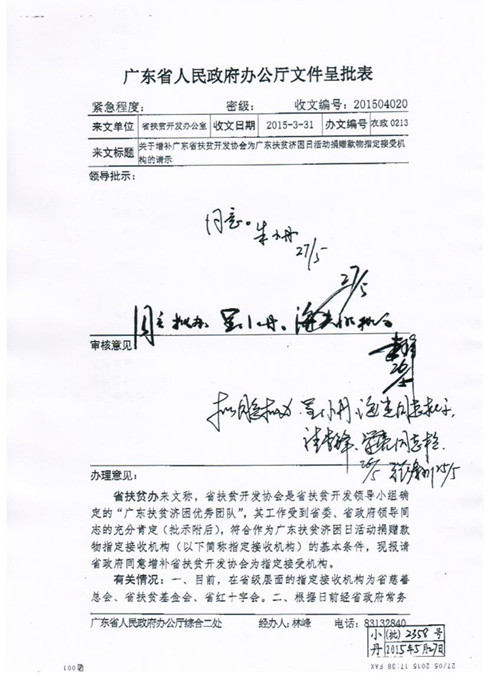 广东省人民政府办公厅文件呈批表
紧急程度： 密级： 收文编号：201504020
来文单位 省扶贫开发办公室 收文日期 2015-3-31 办文编号 农政0213
来文标题 关于增补广东省扶贫开发协会为广东扶贫济困日活动捐赠款物指定接受机
构的请示
领导批示：
同意。朱小丹
27/5
27/5
同意拟办 呈小丹、海
审核意见
26/5
拟同意拟办 呈小丹、海 同志批示
同志
26/5 25/5
办理意见：
省扶贫办来文称，省扶贫开发协会是省扶贫开发领导小组确
定的“广东扶贫济困优秀团队”，其工作受到省委、省政府领导同
志的充分肯定（批示附后），符合作为广东扶贫济困日活动捐赠款
物指定接收机构（以下简称指定接收机构）的基本条件，现报请
省政府同意增补省扶贫开发协会为指定接受机构。
有关情况：一、目前，在省级层面的指定接收机构为省慈善
总会、省扶贫基金会、省红十字会。二、根据日前经省政府常务
广东省人民政府办公厅综合二处 经办人：林峰 电话：83132840
小丹 (批) 2358 号
2015年5月27日
27/05 2015 17:38 FAX
001